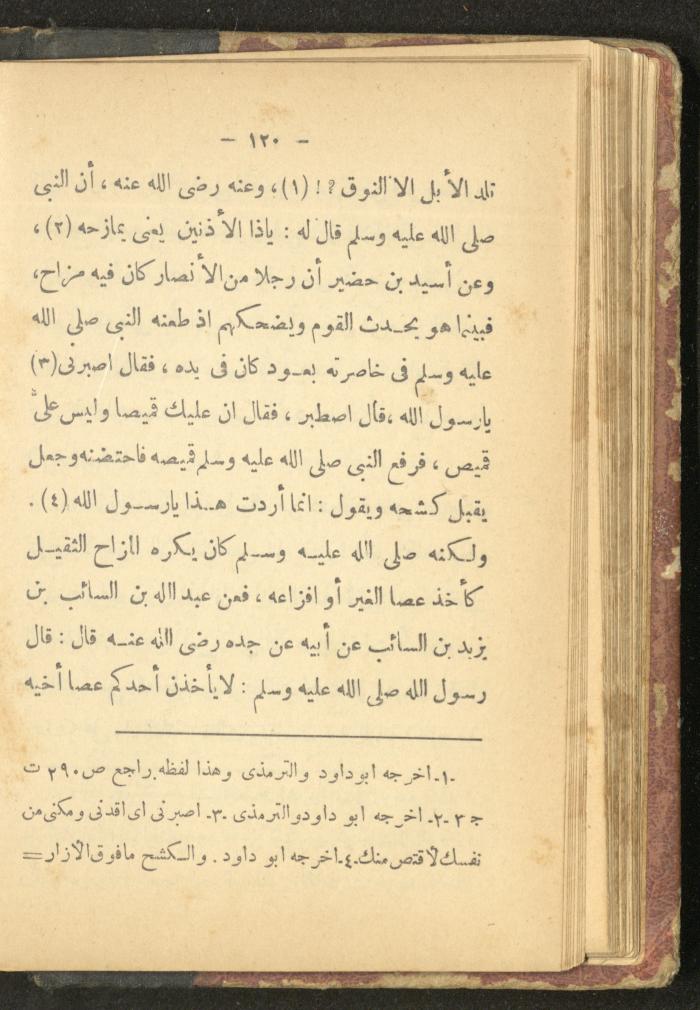 — ١٢٠ —
تلد الأبل الا النوق ?! (١)، وعنه رضى الله عنه ، أن النبى
صلى الله عليه وسلم قال له : ياذا الأذنين يعنى يمازحه (٢) ،
وعن أسيد بن حضير أن رجلا من الأنصار كان فيه مزاح،
فبينما هو يحدث القوم ويضحكهم اذ طعنه النبى صلى الله
عليه وسلم فى خاصرته بعود كان فى يده ، فقال اصبرنى (٣)
يارسول الله ،قال اصطبر ، فقال ان عليك قميصا وليس علىّ
قميص ، فرفع النبى صلى الله عليه وسلم قميصه فاحتضنه وجعل
يقبل كشحه ويقول : انما أردت هذا يارسول الله (٤) .
ولكنه صلى الله عليه وسلم كان يكره المزاح الثقيل
كأخذ عصا الغير أو افزاعه ، فعن عبد الله بن السائب بن
يزيد بن السائب عن أبيه عن جده رضى الله عنه قال : قال
رسول الله صلى الله عليه وسلم : لا يأخذن أحدكم عصا أخيه
-١- اخرجه ابو داود والترمذى وهذا لفظه. راجع ص ٢٩٠ ت
ج ٣ -٢- اخرجه ابو داود والترمذى -٣- اصبرنى اى اقدنى ومكنى من
نفسك لاقتص منك -٤- اخرجه ابو داود . والكشح مافوق الازار =